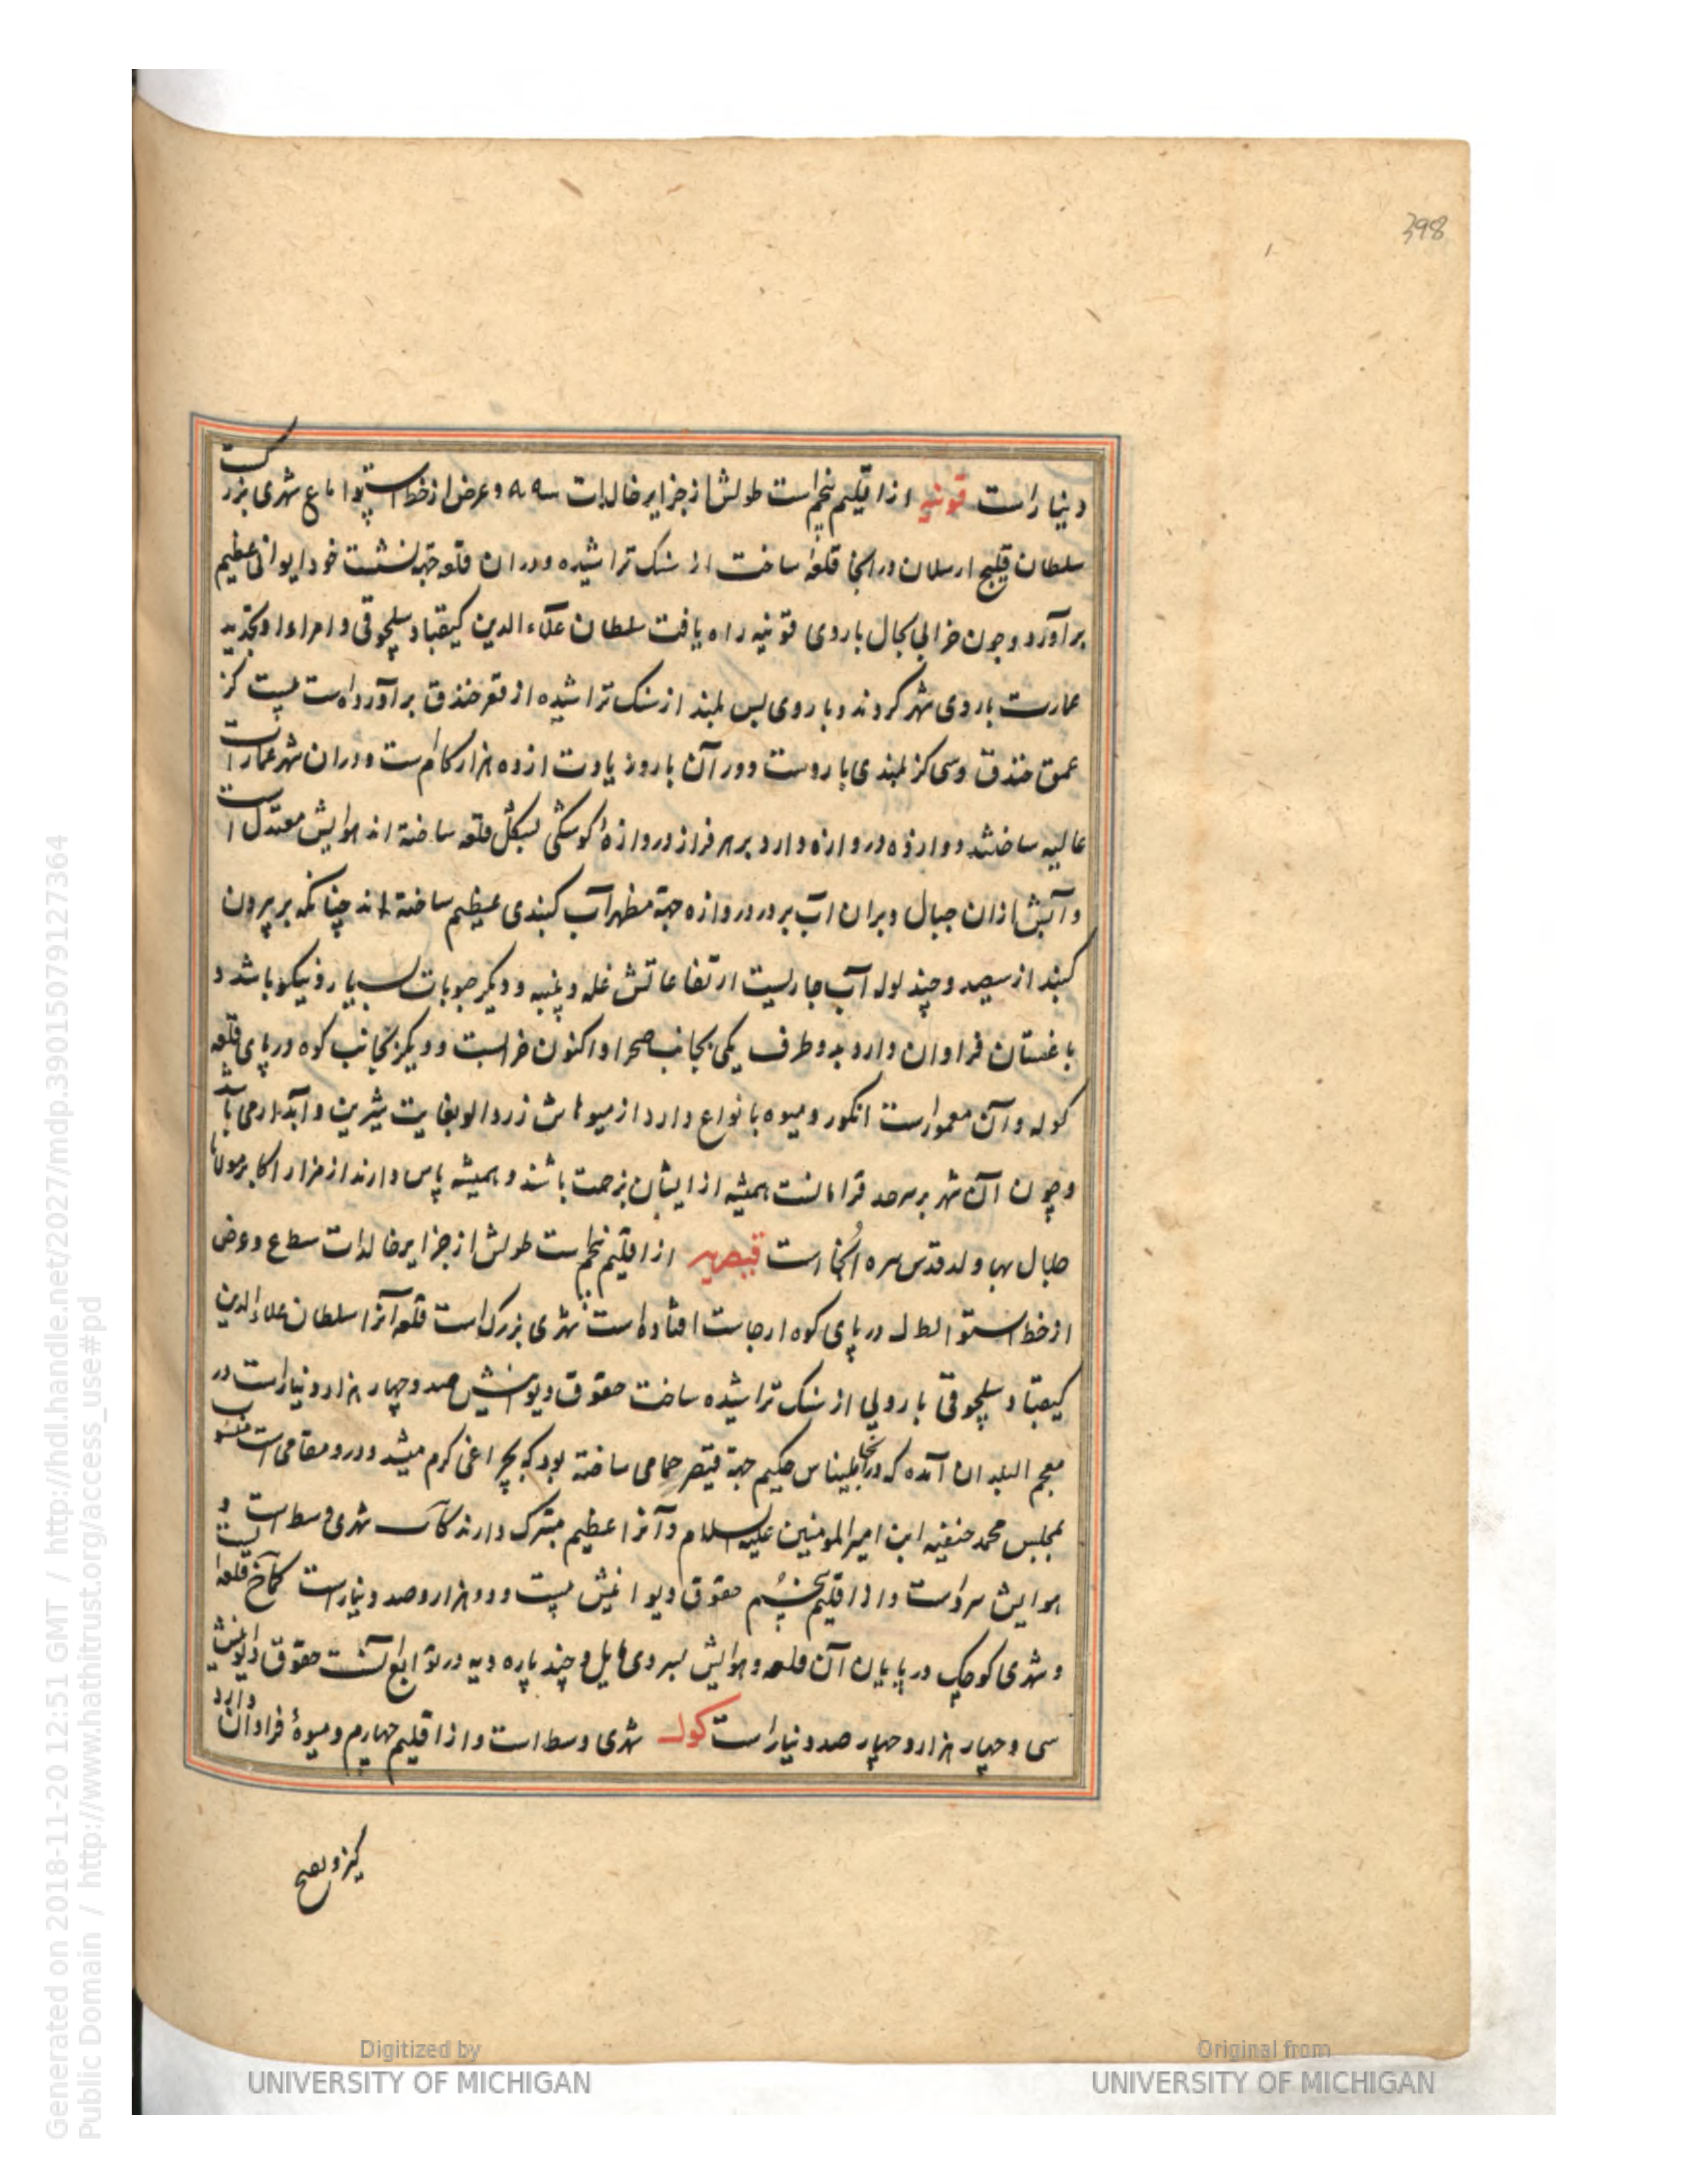 398
دینار است قونیه از اقلیم پنجم است طولش از جزایر خالدات و عرض از خط استوا ما ع شهری بزرگ
سلطان قلیج ارسلان در انجا قلعه ساخت از سنک تراشیده و در ان قلعه جهة نشست خود ایوانی عظیم
برآورد و چون خرابی بحال باروی قونیه راه یافت سلطان علاء الدین کیقباد سلجوقی و امراء او بتجدید
عمارت باروی شهر کردند و باروی بس بلند از سنک تراشیده از قعر خندق برآورده است بیست کز
عمق خندق و سی کز بلندی باروست و دور آن بارو زیادت از ده هزار کام است و در ان شهر عمارات
عالیه ساختند دوازده دروازه دارد بر هر فراز دروازهٔ کوشکی بشکل قلعه ساخته اند هوایش معتدل است
و آبش از ان جبال و بر ان آب بر در دروازه جهة مظهر آب کنبدی عظیم ساخته اند چنانکه بر بیرون
کنبد از سیصد و چند لوله آب جاریست ارتفاعاتش غله و پنبه و دیکر حبوبات بسیار و نیکو باشد و
باغستان فراوان دارد بدو طرف یکی بجانب صحرا و اکنون خرابست و دیکر بجانب کوه در پای قلعه
کوله و آن معمور است انکور و میوه بانواع دارد از میوهاش زردالو بغایت شیرین و آبدار می باشد
و چون آن شهر بر سرحد قرامانست همیشه از ایشان بزحمت باشند و همیشه پاس دارند از مزار اکابر مولانا
جلال بها ولد قدس سره آنجا است قیصریه از اقلیم پنجم است طولش از جزایر خالدات سط ع و عرض
از خط استوا لط ل در پای کوه ارجاست افتاده است شهری بزرک است قلعه آنرا سلطان علاء الدین
کیقباد سلجوقی باروئی از سنک تراشیده ساخت حقوق دیوانیش صد و چهار هزار دینار است در
معجم البلدان آمده که در انجا بلیناس حکیم جهة قیصر حمامی ساخته بود که بچراغی کرم میشد و درو مقامی است منسوب
بمجلس محمد حنفیه ابن امیر المومنین علیه السلام و آنرا عظیم متبرک دارند شهری وسط است و
هوایش سردست و از اقلیم پنجم حقوق دیوانیش بیست و دو هزار و صد دینار است کماخ قلعه ایست
و شهری کوچک در پایان آن قلعه و هوایش بسردی مایل و چند پاره دیه در توابع آنست حقوق دیوانیش
سی و چهار هزار و چهار صد دینار است کول شهری وسط است و از اقلیم چهارم و میوهٔ فراوان دارد
Generated on 2018-11-20 12:51 GMT / http://hdl.handle.net/2027/mdp.39015079127364
Public Domain / http://www.hathitrust.org/access_use#pd
Digitized by
UNIVERSITY OF MICHIGAN
Original from
UNIVERSITY OF MICHIGAN